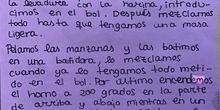 la levadura, con la harina, introdu-
cimos en el bol. Después mezclamos
todo hasta que tengamos una masa
ligera.
Pelamos las manzanas y las batimos
en una batidora, lo mezclamos
cuando ya lo tengamos todo meti-
do en el bol. Por último encendemo
el horno a 200 grados en la parte
de arriba y abajo mientras en un